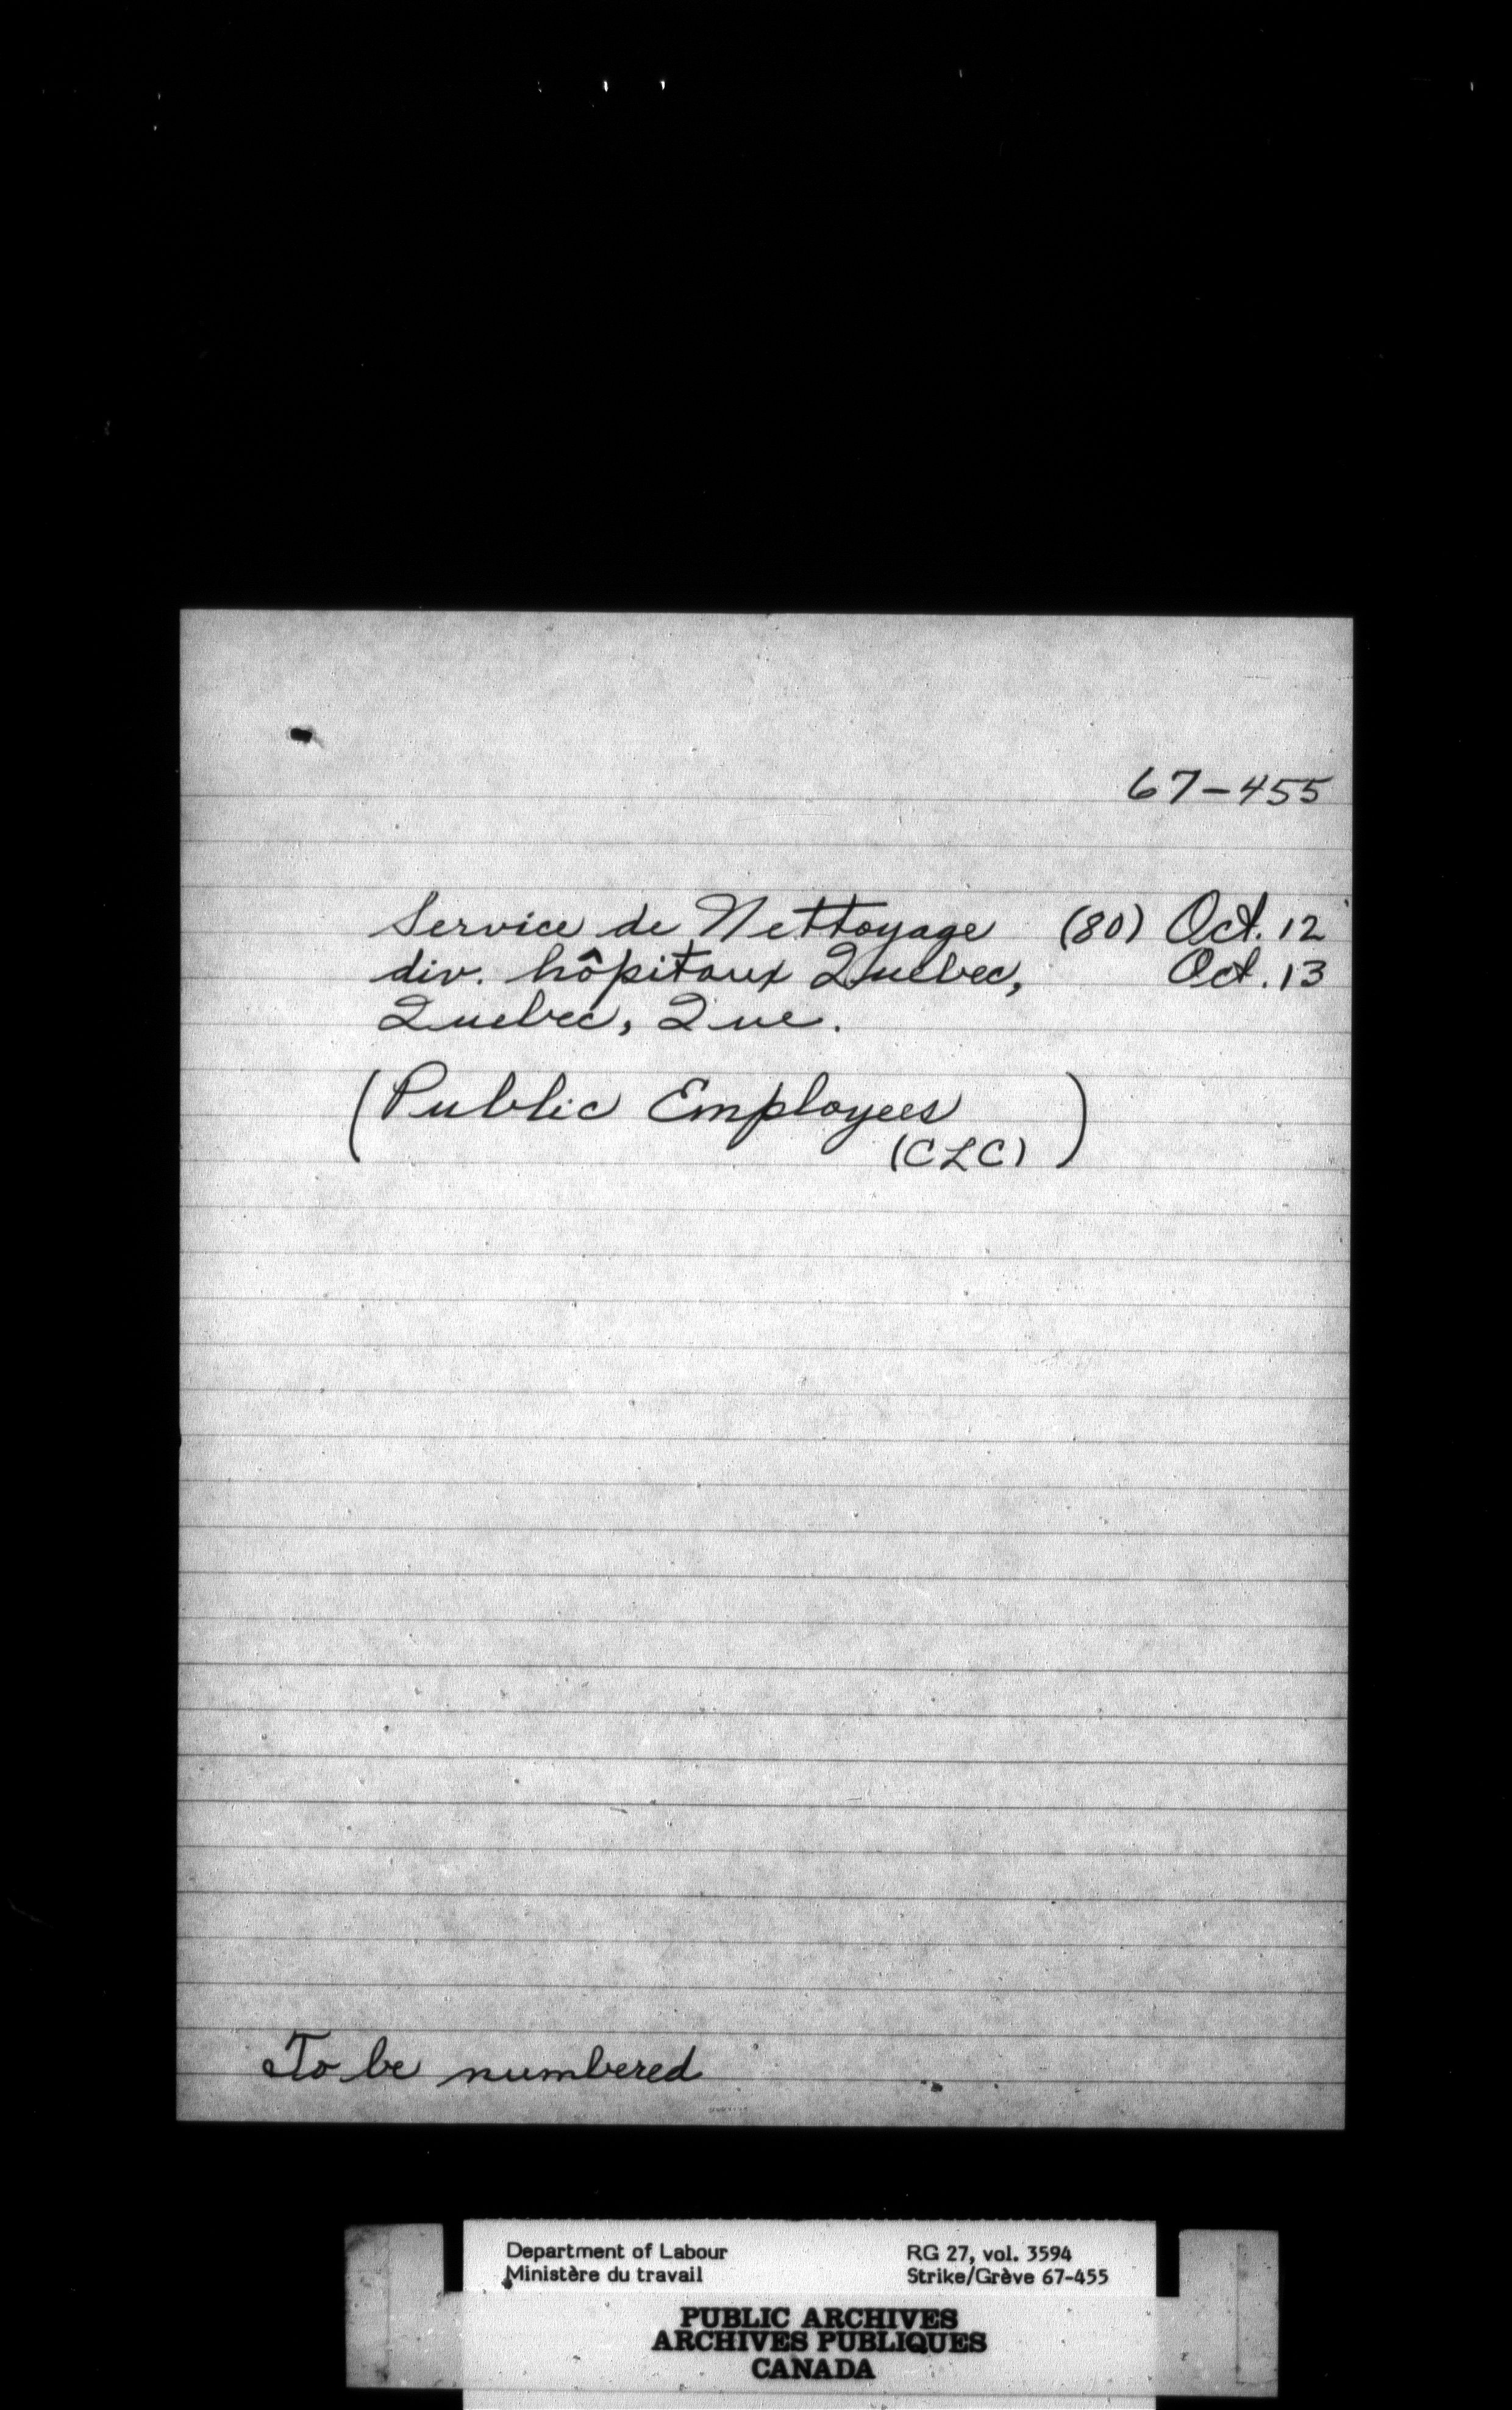 67-455
Service de Nettoyage (80) Oct. 12
div. hôpitaux Quebec, Oct. 13
Quebec, Que.
(Public Employees
(CLC) )
To be numbered
Department of Labour RG 27, vol. 3594
Ministère du travail Strike/Grève 67-455
PUBLIC ARCHIVES
ARCHIVES PUBLIQUES
CANADA